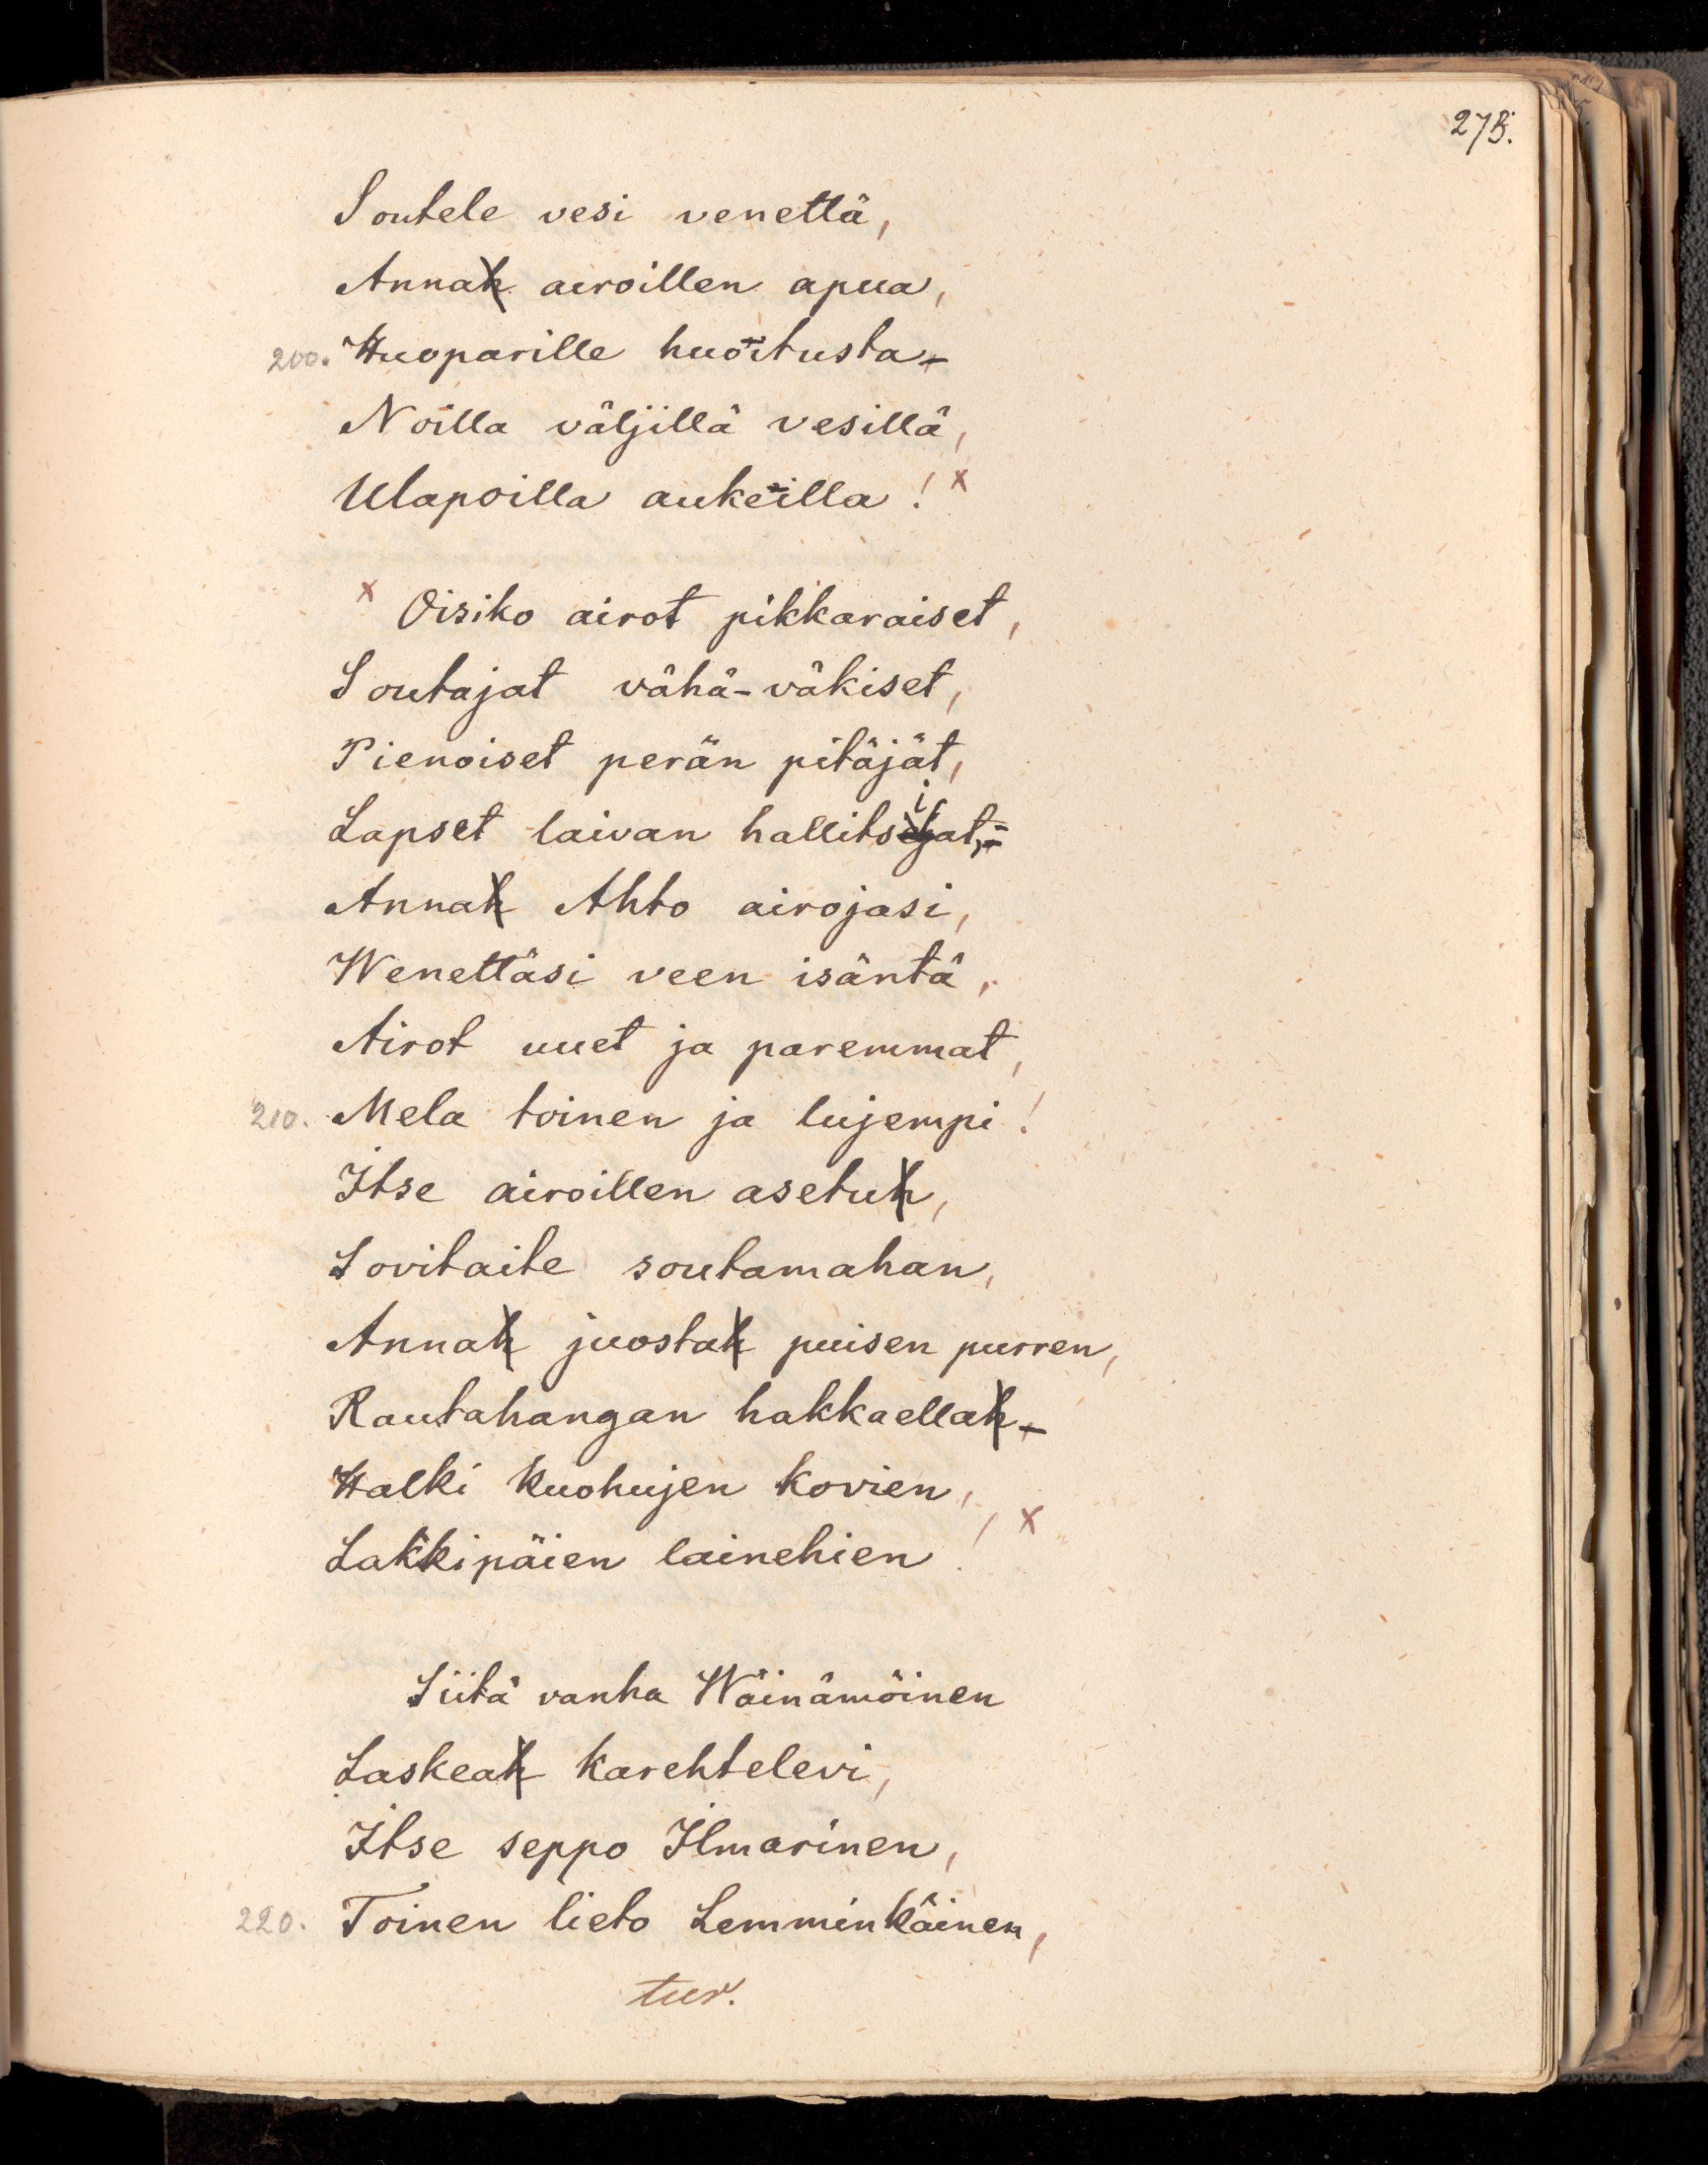 275.
Soutele vesi venettä,
Annah airoillen apua,
200. Huoparille huoitusta -
Noilla väljillä vesillä,
Ulapoilla aukeilla! x
x Oisiko airot pikkaraiset,
Soutajat vähä-väkiset,
Pienoiset perän pitäjät,
Lapset laivan hallitsijat, -
Annah Ahto airojasi,
Wenettäsi veen isäntä,
Airot uuet ja paremmat,
210. Mela toinen ja lujempi!
Itse airoillen asetuh,
Sovitaite soutamahan,
Annah juostah puisen purren,
Rautahangan hakkaellah -
Halki kuohujen kovien,
Lakkipäien lainehien! x
Siitä vanha Wäinämöinen
Laskeah karehtelevi,
Itse seppo Ilmarinen,
220. Toinen lieto Lemminkäinen,